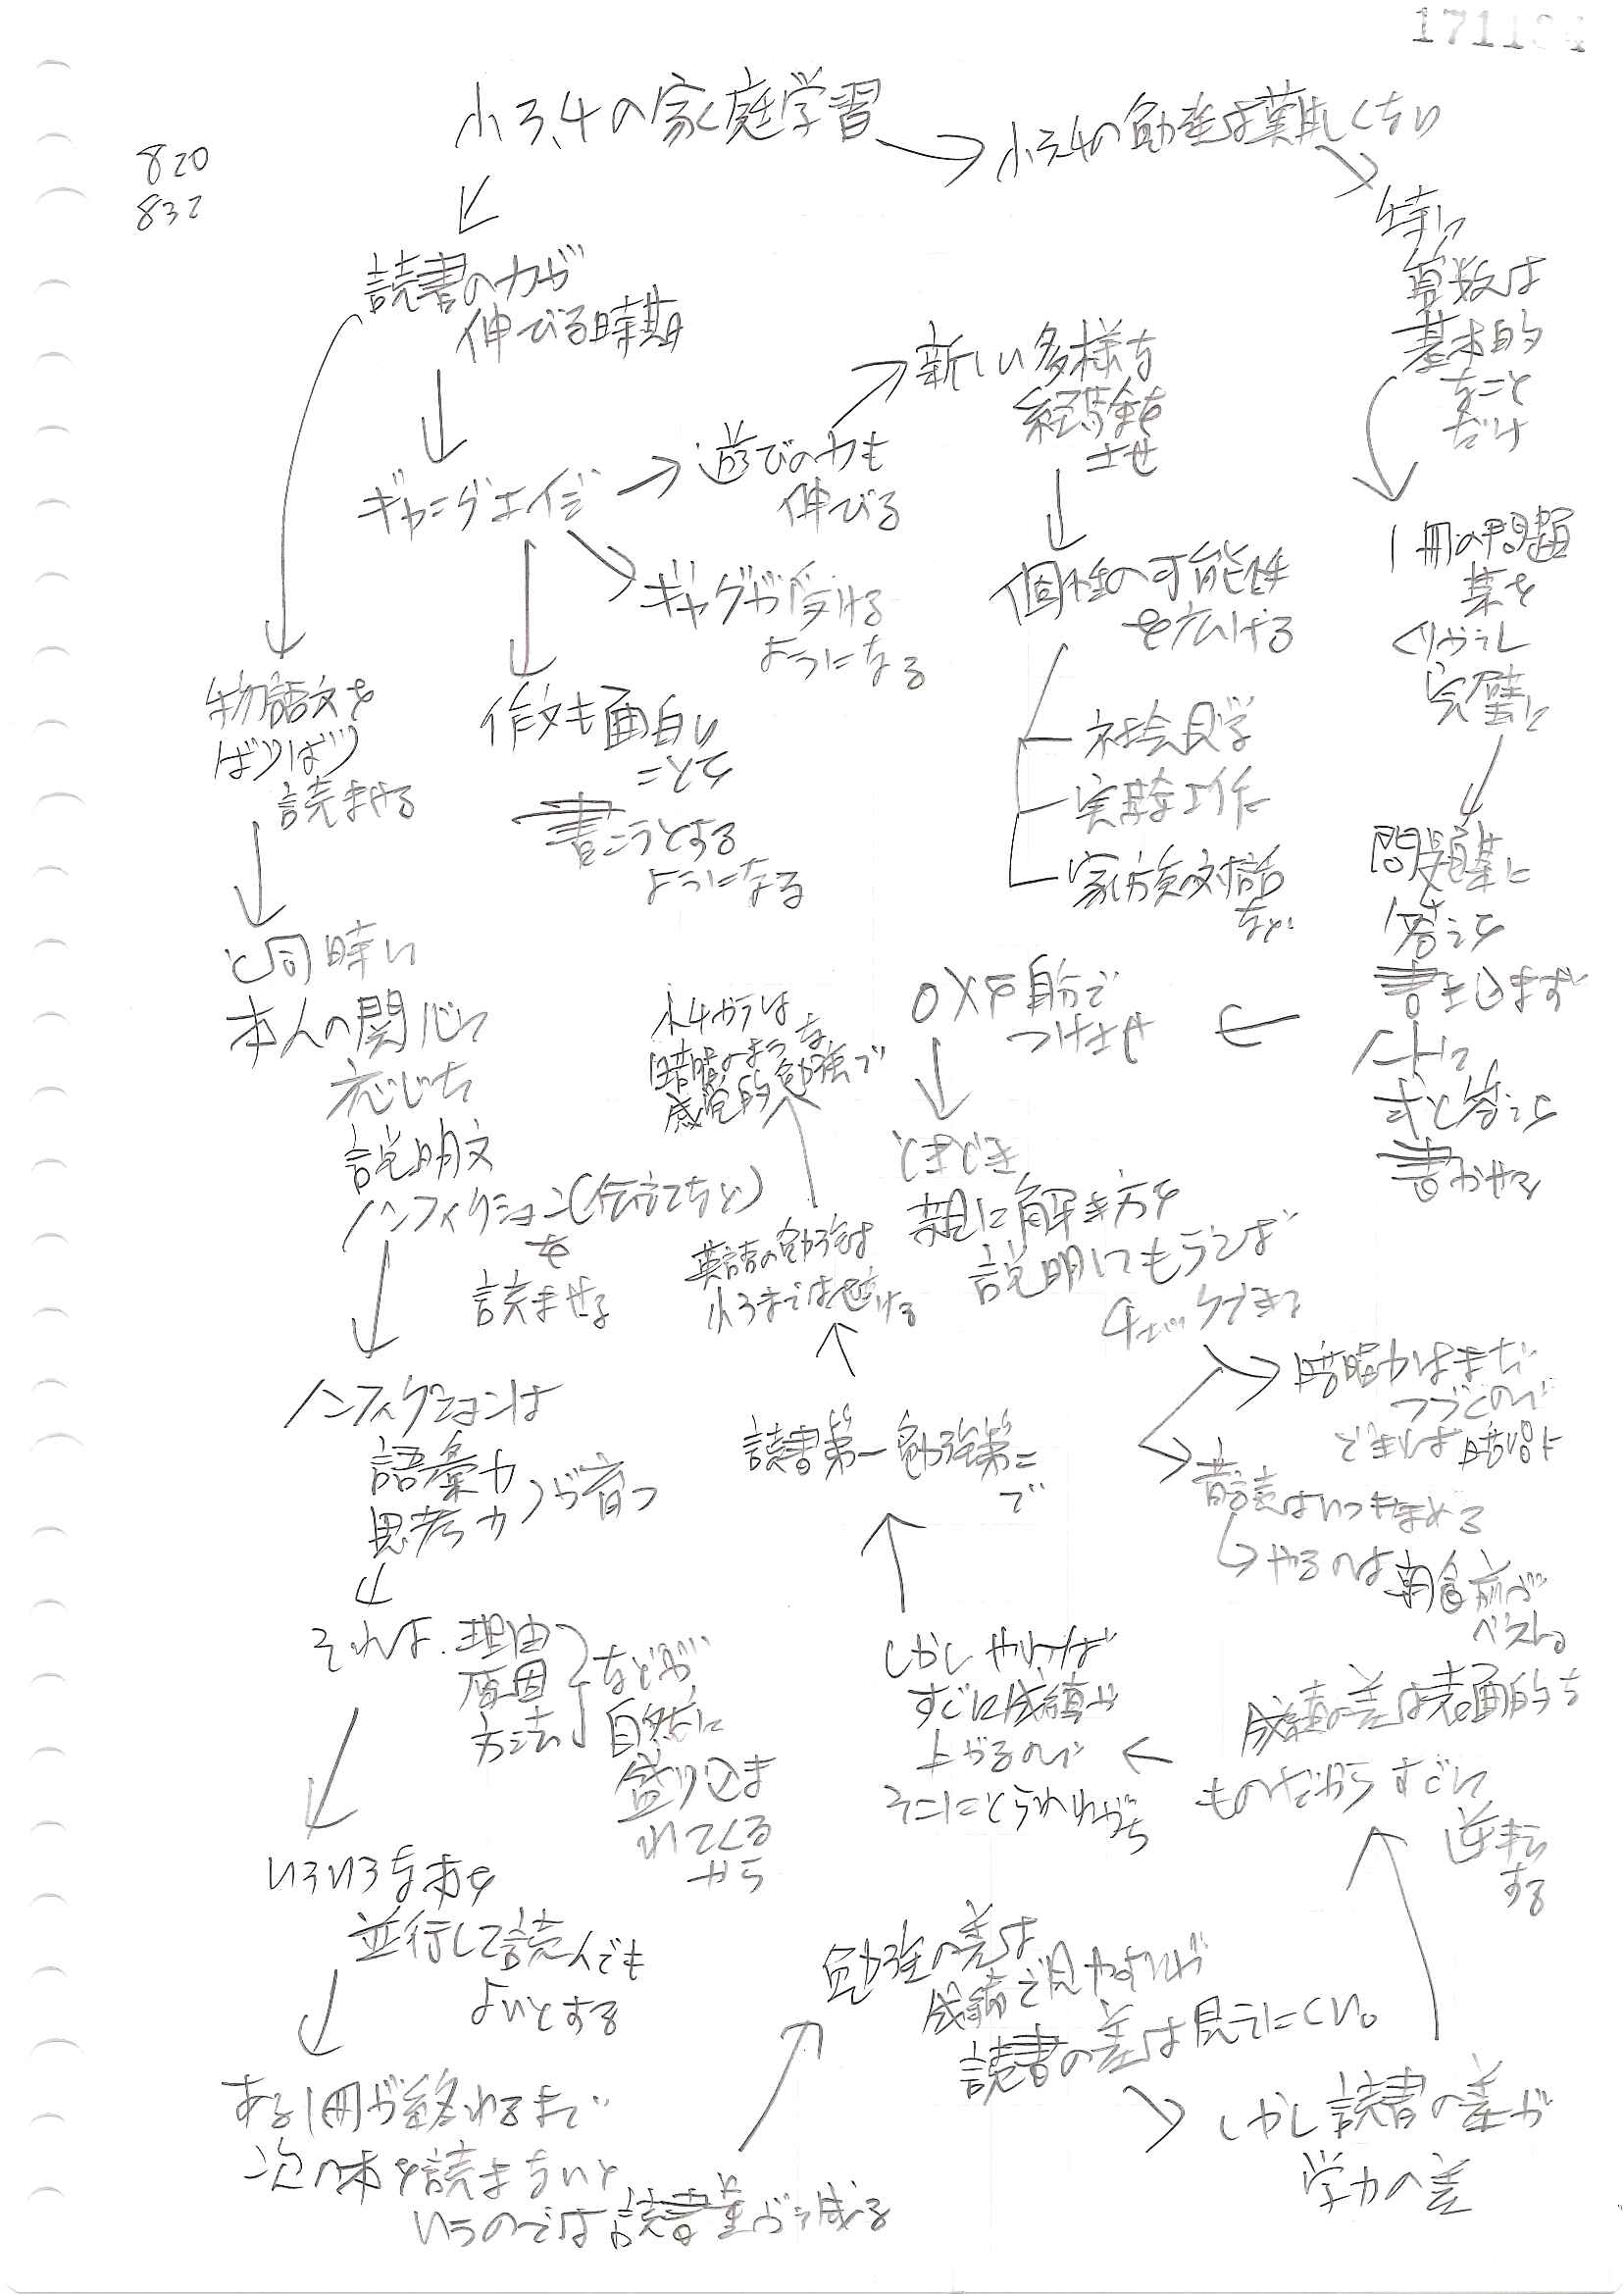 小3、4の家庭学習
小3 4の勉強は難しくない
820
832
特に
算数は
基本的
なこと
だけ
1冊の問題
集を
くりかえし
完璧に
問題集に
答えを
書き込まず
ノートに
式と答えを
書かせる
○×を自分で
つけさせ
ときどき
親に解き方を
説明してもらえば
チェックできる
暗唱力はまだ
つづくので
できれば暗唱に
音読はいつまでも
やるのは朝食前が
ベスト。
読書の力が
伸びる時期
ギャングエイジ
遊びの力も
伸びる
新しい多様な
経験を
させ
個性の可能性
を広げる
社会見学
実験工作
家族の対話
など
ギャグが受ける
ようになる
作文も面白い
ことを
書こうとする
ようになる
物語文を
ばりばり
読ませる
と同時に
本人の関心に
応じた
説明文
ノンフィクション(伝記など)
を
読ませる
ノンフィクションは
語彙力
思考力
が育つ
それは、理由
原因
方法
などが
自然に
盛り込ま
れてくる
から
いろいろな本を
並行して読んでも
よいとする
ある1冊が終わるまで
次の本を読まないと
いうのでは読書量が減る
勉強の差は
成績で見やすいが
読書の差は見えにくい。
しかし読書の差が
学力の差
成績の差は表面的な
ものだからすぐに
逆転
する
しかしやれば
すぐに成績が
上がるので
そこにとらわれがち
読書第一勉強第二
で
英語の勉強は
小3までは避ける
小4からは
暗唱のような
感覚的勉強で